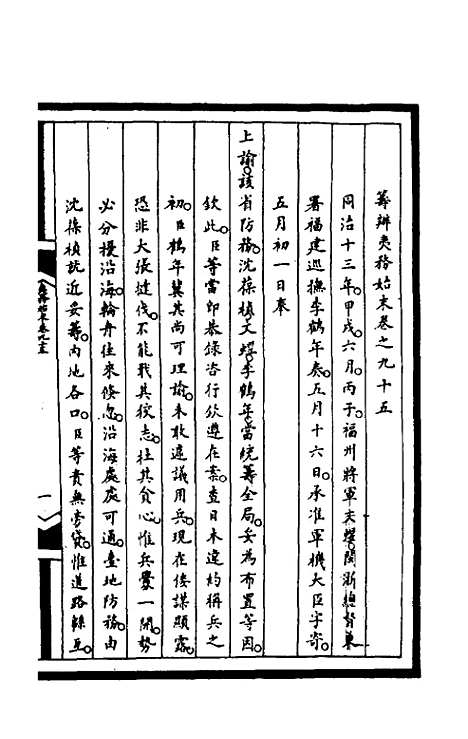 籌辦夷務始末卷之九十五
同治十三年甲戌六月丙子福州將軍文煜閩浙總督兼
署福建巡撫李鶴年奏五月十六日承准軍機大臣字寄
五月初一日奉
上諭該省防務沈葆楨文煜李鶴年當統籌全局妥為布置等因
欽此臣等當即恭錄咨行欽遵在案查日本違約稱兵之
初臣鶴年冀其尚可理諭未敢遽議用兵現在倭謀顯露
恐非大張撻伐不能戢其狡志杜其貪心惟兵釁一開勢
必分擾沿海輪舟往來倏忽沿海處處可通臺地防務由
沈葆楨就近妥籌內地各口臣等責無旁貸惟道路綿亙